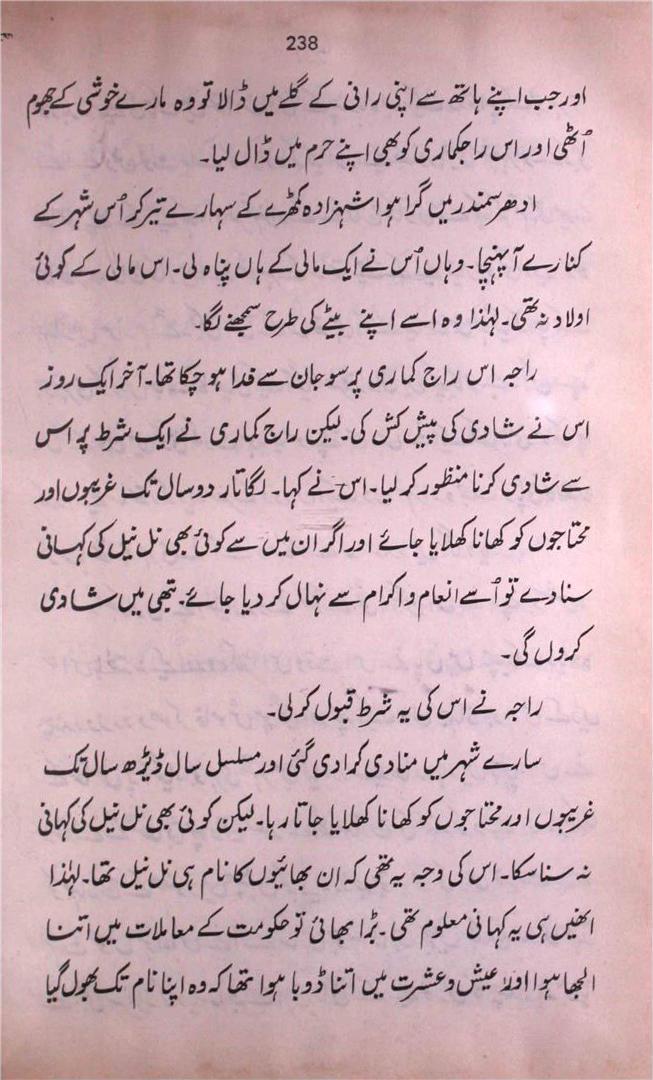 238
اور جب اپنے ہاتھ سے اپنی رانی کے گلے میں ڈالا تو وہ مارے خوشی کے جھوم
اُٹھی اور اس راجکماری کو بھی اپنے حرم میں ڈال لیا۔
ادھر سمندر میں گرا ہوا شہزادہ لکڑے کے سہارے تیر کر اُس شہر کے
کنارے آ پہنچا۔ وہاں اُس نے ایک مالی کے ہاں پناہ لی۔ اس مالی کے کوئی
اولاد نہ تھی۔ لہٰذا وہ اسے اپنے بیٹے کی طرح سمجھنے لگا۔
راجہ اس راج کماری پر سو جان سے فدا ہو چکا تھا۔ آخر ایک روز
اس نے شادی کی پیش کش کی۔ لیکن راج کماری نے ایک شرط پر اس
سے شادی کرنا منظور کر لیا۔ اس نے کہا۔ لگاتار دو سال تک غریبوں اور
محتاجوں کو کھانا کھلایا جائے اور اگر ان میں سے کوئی بھی نل نیل کی کہانی
سنا دے تو اُسے انعام و اکرام سے نہال کر دیا جائے۔ تبھی میں شادی
کروں گی۔
راجہ نے اس کی یہ شرط قبول کر لی۔
سارے شہر میں منادی کرا دی گئی اور مسلسل سال ڈیڑھ سال تک
غریبوں اور محتاجوں کو کھانا کھلایا جاتا رہا۔ لیکن کوئی بھی نل نیل کی کہانی
نہ سنا سکا۔ اس کی وجہ یہ تھی کہ ان بھائیوں کا نام ہی نل نیل تھا۔ لہٰذا
انھیں ہی یہ کہانی معلوم تھی۔ بڑا بھائی تو حکومت کے معاملات میں اتنا
الجھا ہوا اور عیش و عشرت میں اتنا ڈوبا ہوا تھا کہ وہ اپنا نام تک بھول گیا